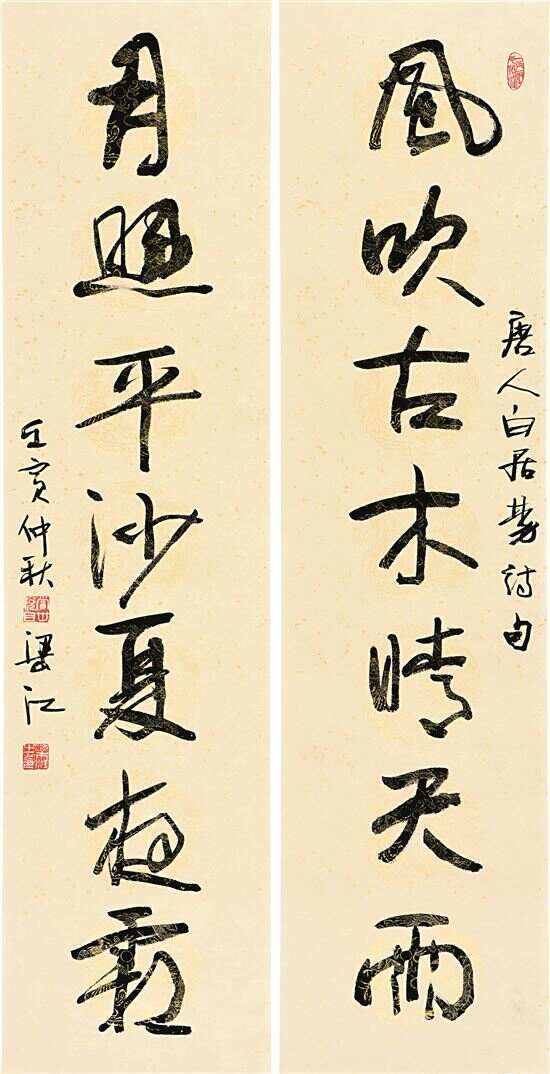 風吹古木晴天雨
唐人白居易詩句
月照平沙夏夜霜
壬寅仲秋
梁江